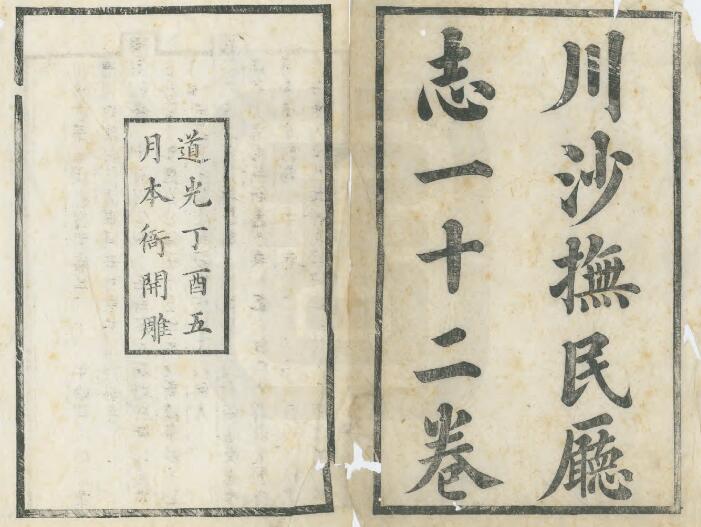 川沙撫民廳
志一十二卷
道光丁酉五
月本衙開雕